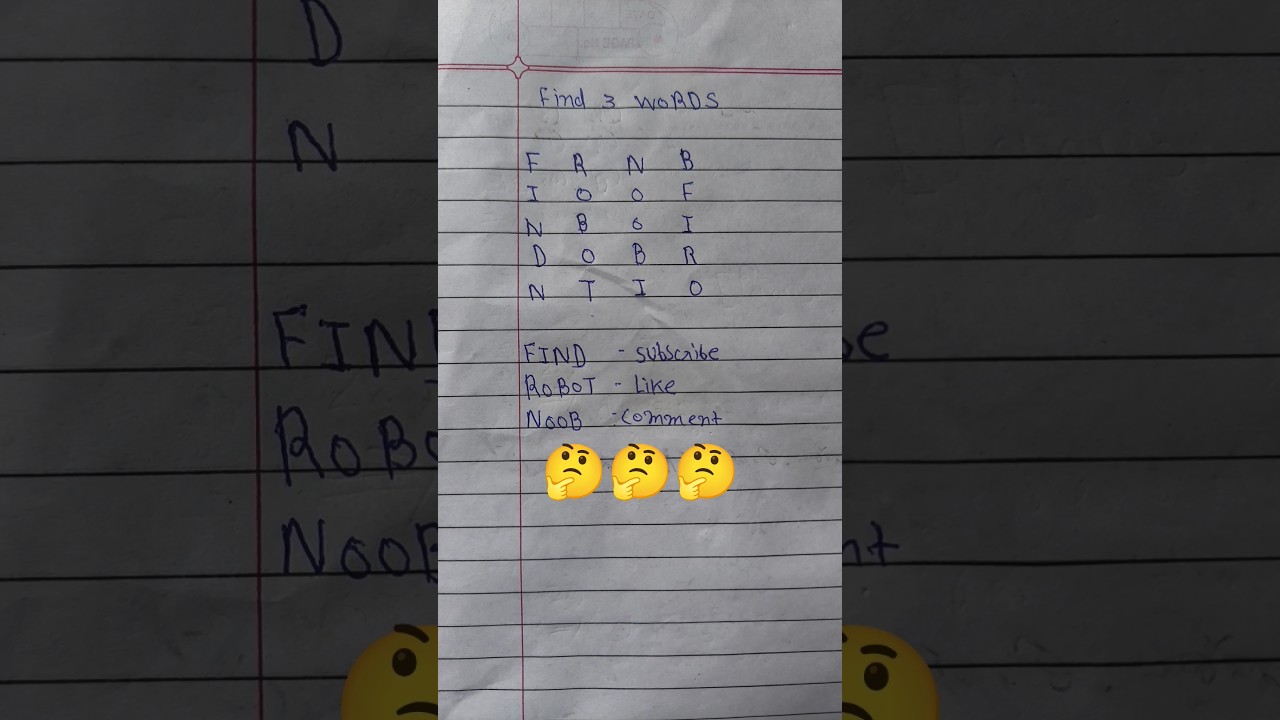 Find 3 WORDS
F R N B
I O O F
N B O I
D O B R
N T I O
FIND - subscribe
ROBOT - Like
NOOB - comment